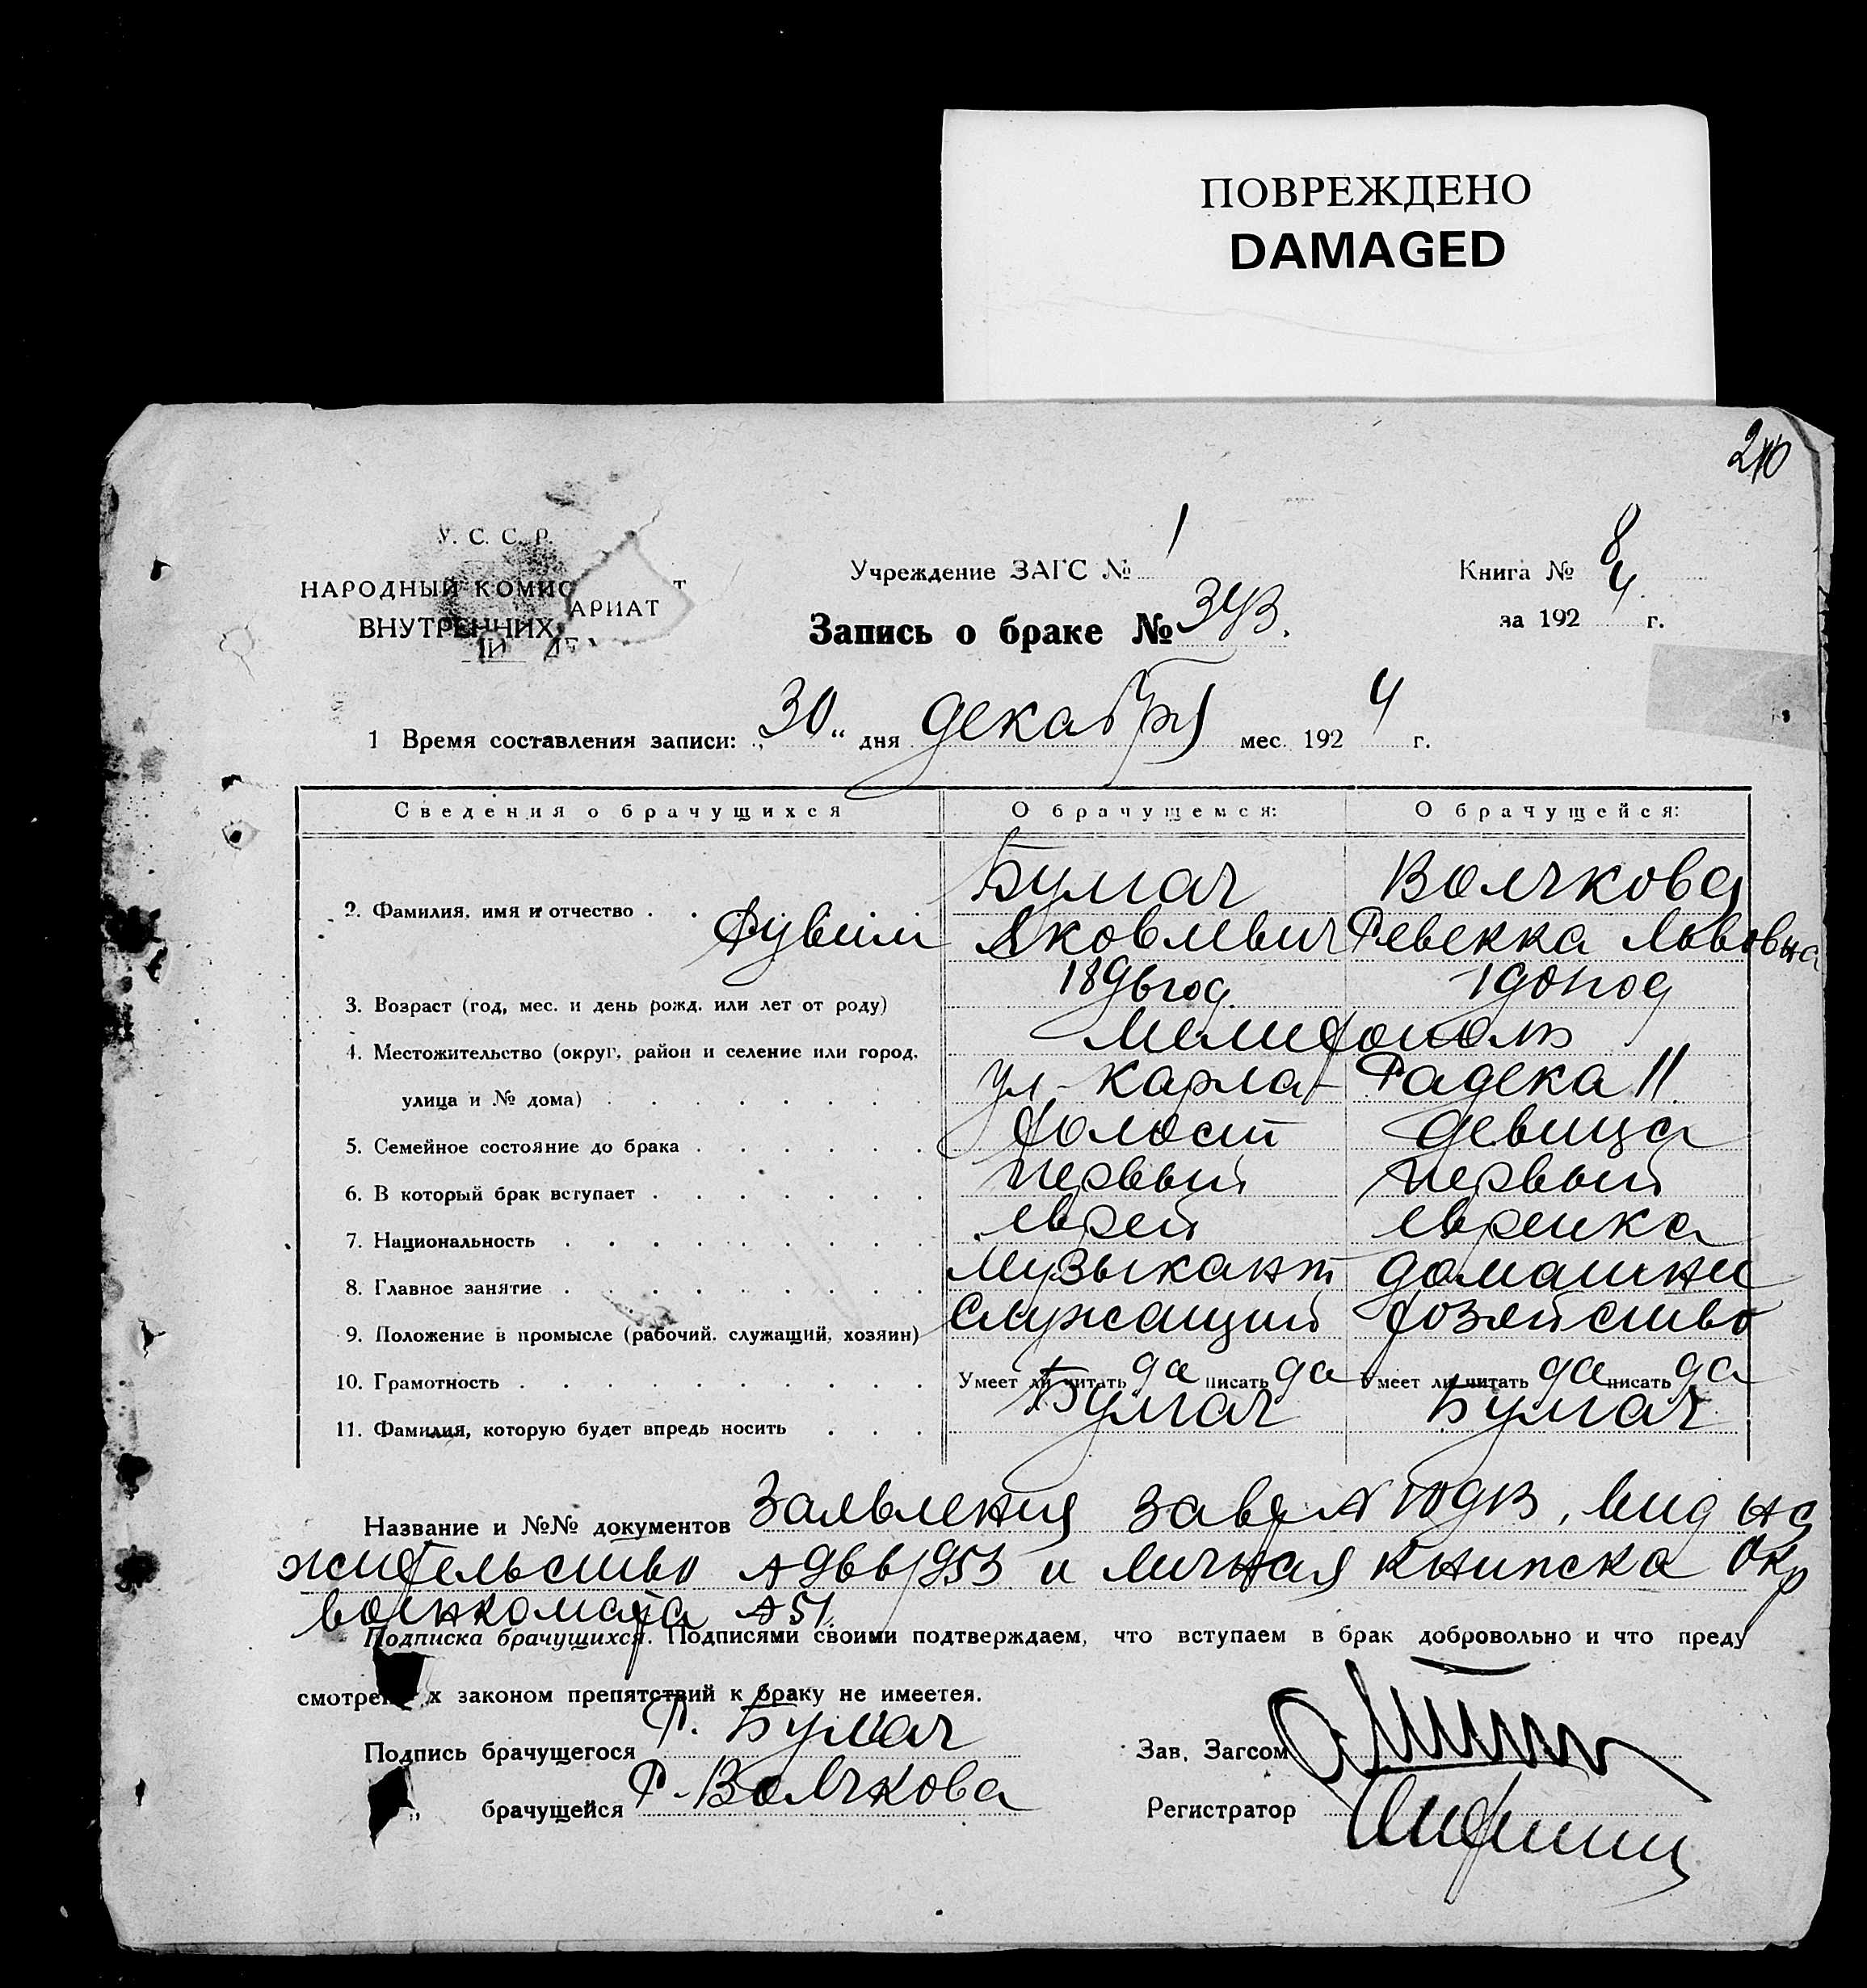 ПОВРЕЖДЕНО
DAMAGED
210
У. С. С. Р.
НАРОДНЫЙ КОМИССАРИАТ
ВНУТРЕННИХ
Учреждение ЗАГС № 1
Книга № 8
за 1924 г.
Запись о браке № 343.
1 Время составления записи: „30“ дня декабря мес. 1924 г.
Сведения о брачущихся О брачущемся: О брачущейся:
Бумаг Волчкова
2. Фамилия, имя и отчество . . Рувим Яковлевич Ревекка Львовна
3. Возраст (год, мес. и день рожд. или лет от роду) год год
4. Местожительство (округ, район и селение или город, Мелитополь
улица и № дома) ул - Карла - Радека 11
5. Семейное состояние до брака холост девица
6. В который брак вступает первый первый
7. Национальность еврей еврейка
8. Главное занятие музыкант домашнее
9. Положение в промысле (рабочий, служащий, хозяин) служащий хозяйство
10. Грамотность Умеет ли читать да писать да Умеет ли читать да писать да
11. Фамилия, которую будет впредь носить Бумаг Бумаг
Название и №№ документов Заявления вид на
жительство и личная книжка Окр
военкомата № 51.
Подписка брачущихся. Подписями своими подтверждаем, что вступаем в брак добровольно и что преду
смотренных законом препятствий к браку не имеется.
Подпись брачущегося Р. Бумаг
Зав. Загсом
„ брачущейся Р. Волчкова
Регистратор